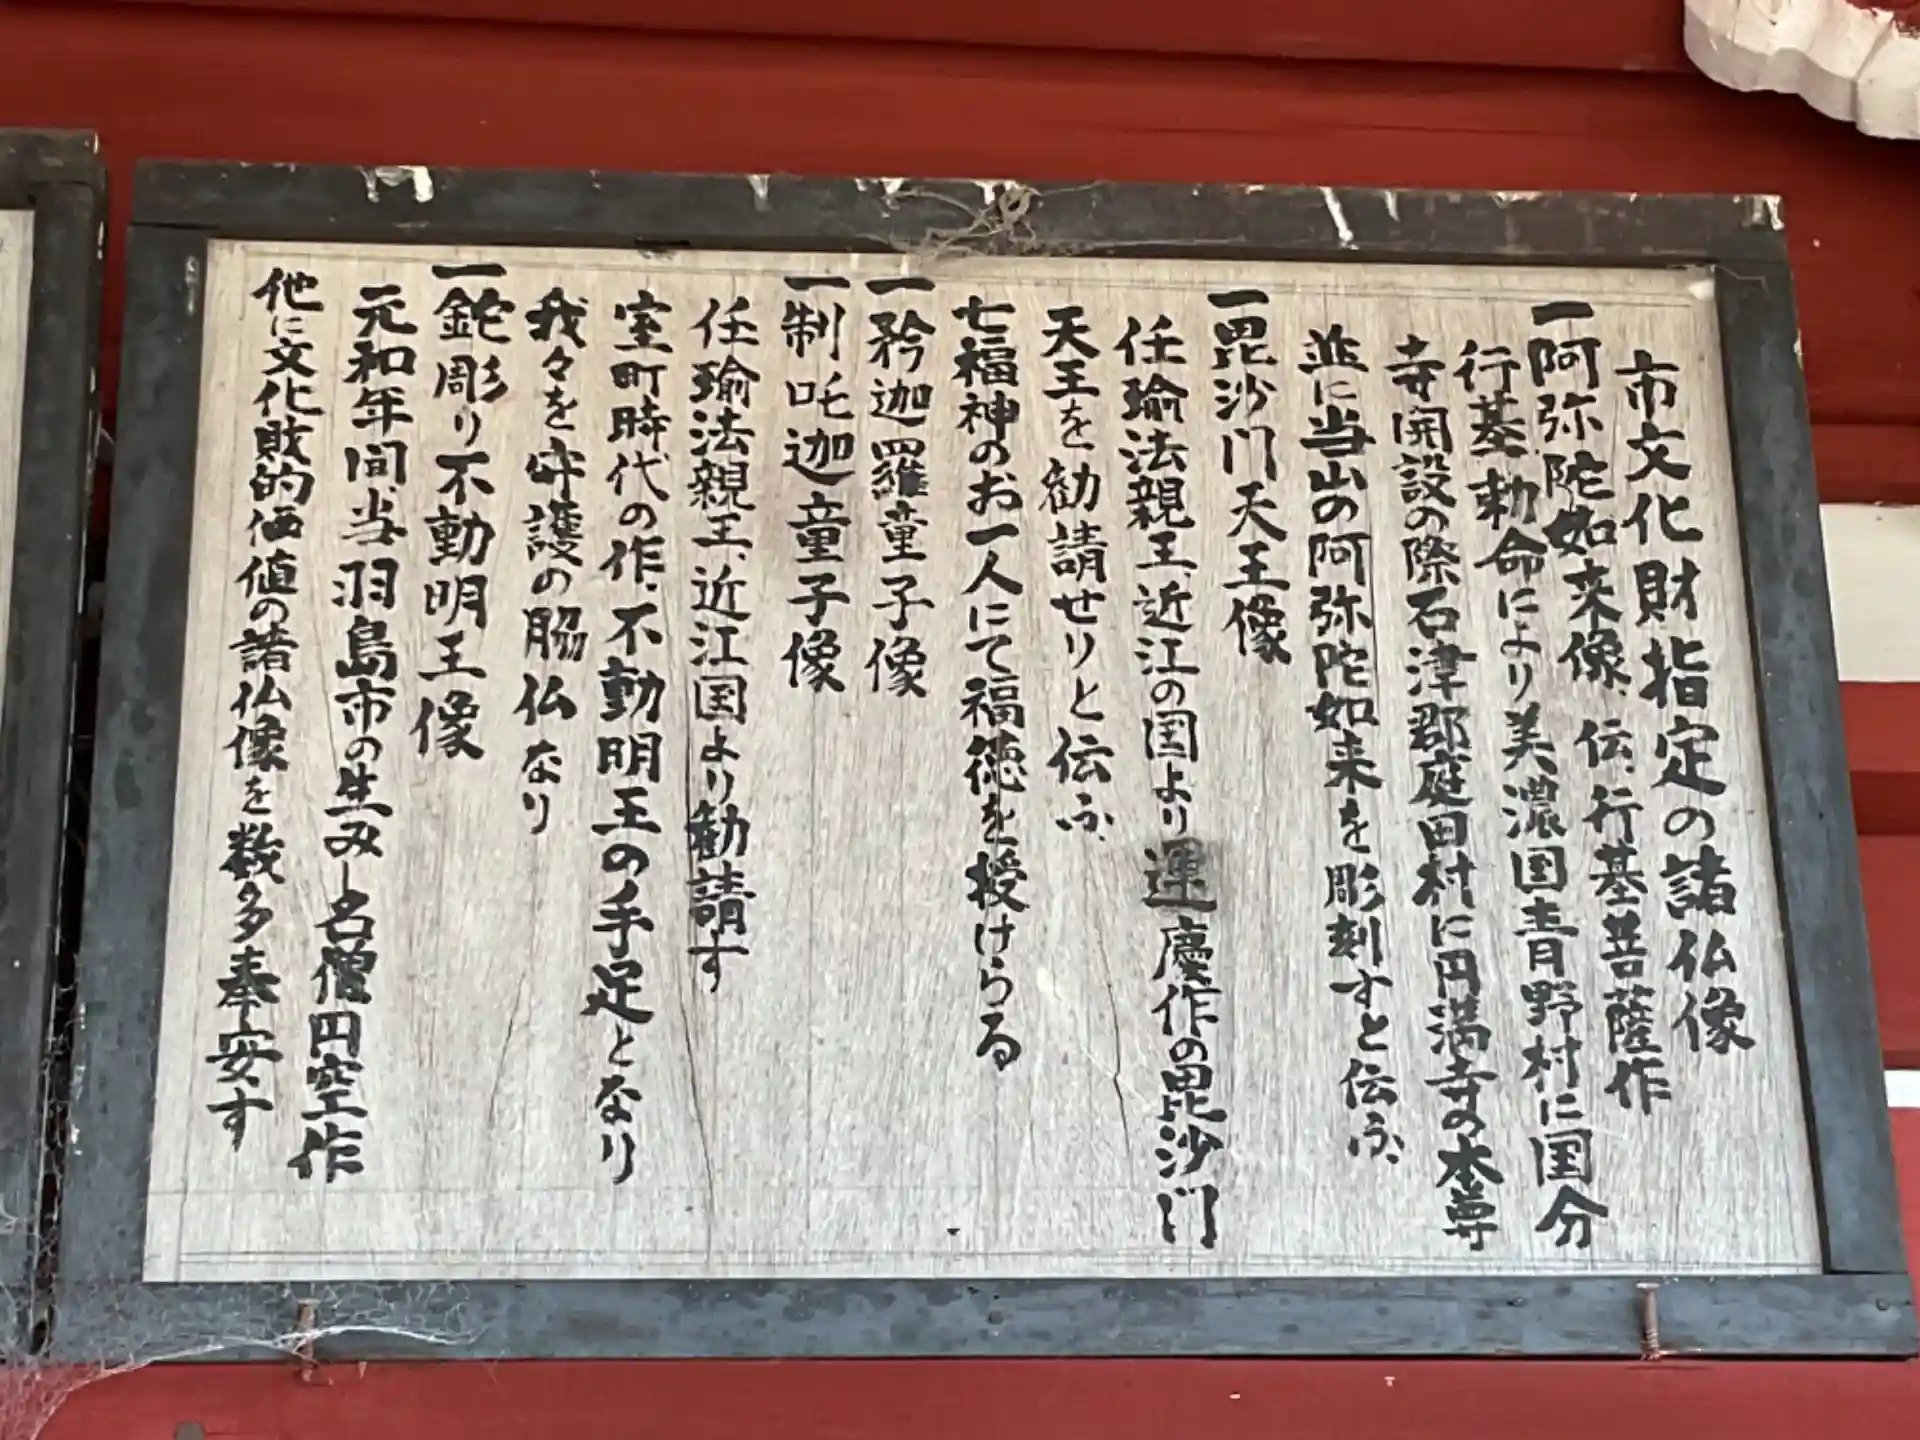 市文化財指定の諸仏像
一阿弥陀如来像、伝、行基菩薩作
行基勅命により美濃国青野村に国分
寺開設の際石津郡庭田村に円満寺の本尊
並に当山の阿弥陀如来を彫刻すと伝ふ、
一毘沙門天王像
任瑜法親王、近江の国より運慶作の毘沙門
天王を勧請せりと伝ふ、
七福神のお一人にて福徳を授けらる
一矜迦羅童子像
一制吒迦童子像
任瑜法親王、近江国より勧請す
室町時代の作、不動明王の手足となり
我々を守護の脇仏なり
一鉈彫り不動明王像
元和年間、当羽島市の生みし名僧円空作
他に文化財的価値の諸仏像を数多奉安す